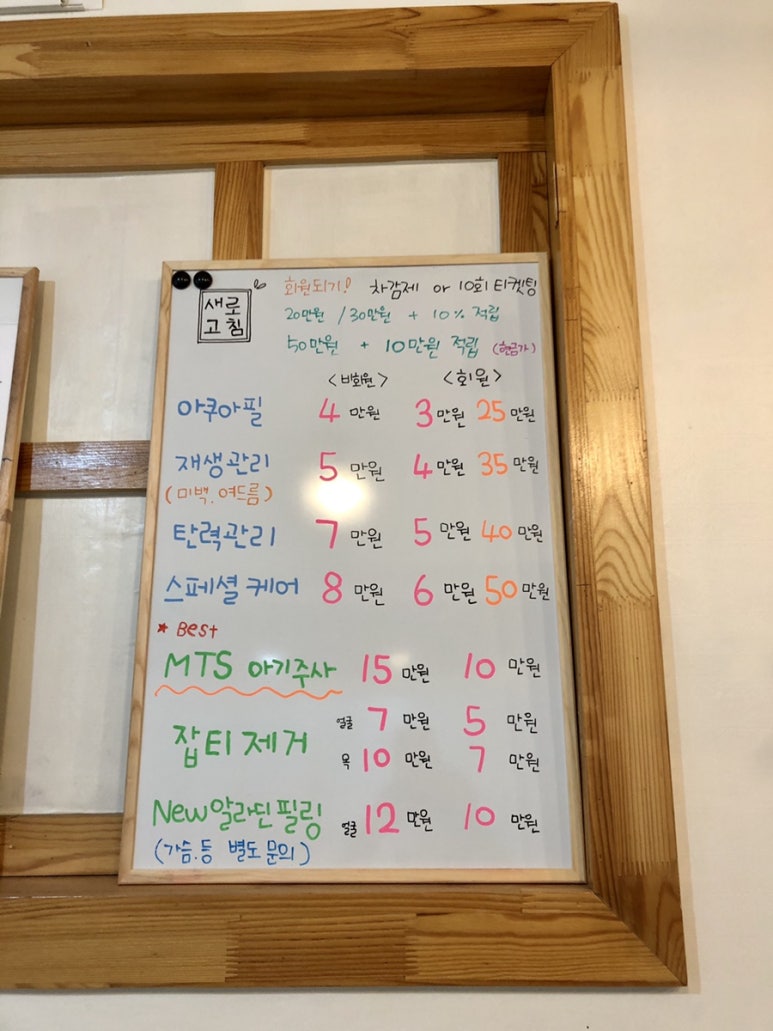 새로
고침
회원되기! 차감제 or 10회 티켓팅
20만원 / 30만원 + 10% 적립
50만원 + 10만원 적립 (현금가)
<비회원> <회원>
아쿠아필 4 만원 3만원 25만원
재생관리 5 만원 4만원 35만원
(미백.여드름)
탄력관리 7 만원 5 만원 40만원
스페셜 케어 8 만원 6 만원 50만원
★ Best
MTS 아기주사 15 만원 10 만원
잡티제거 얼굴 7 만원 5 만원
목 10 만원 7 만원
New알라딘필링 얼굴 12 만원 10 만원
(가슴.등 별도 문의)